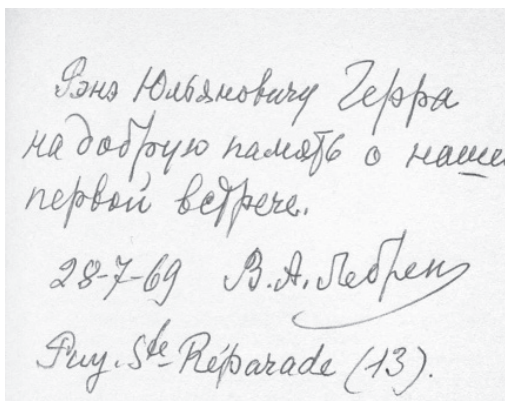 Рэнэ Юльяновичу Герра
на добрую память о нашей
первой встрече.
28-7-69 В.А. Лебрен
Puy. Ste-Réparade (13).